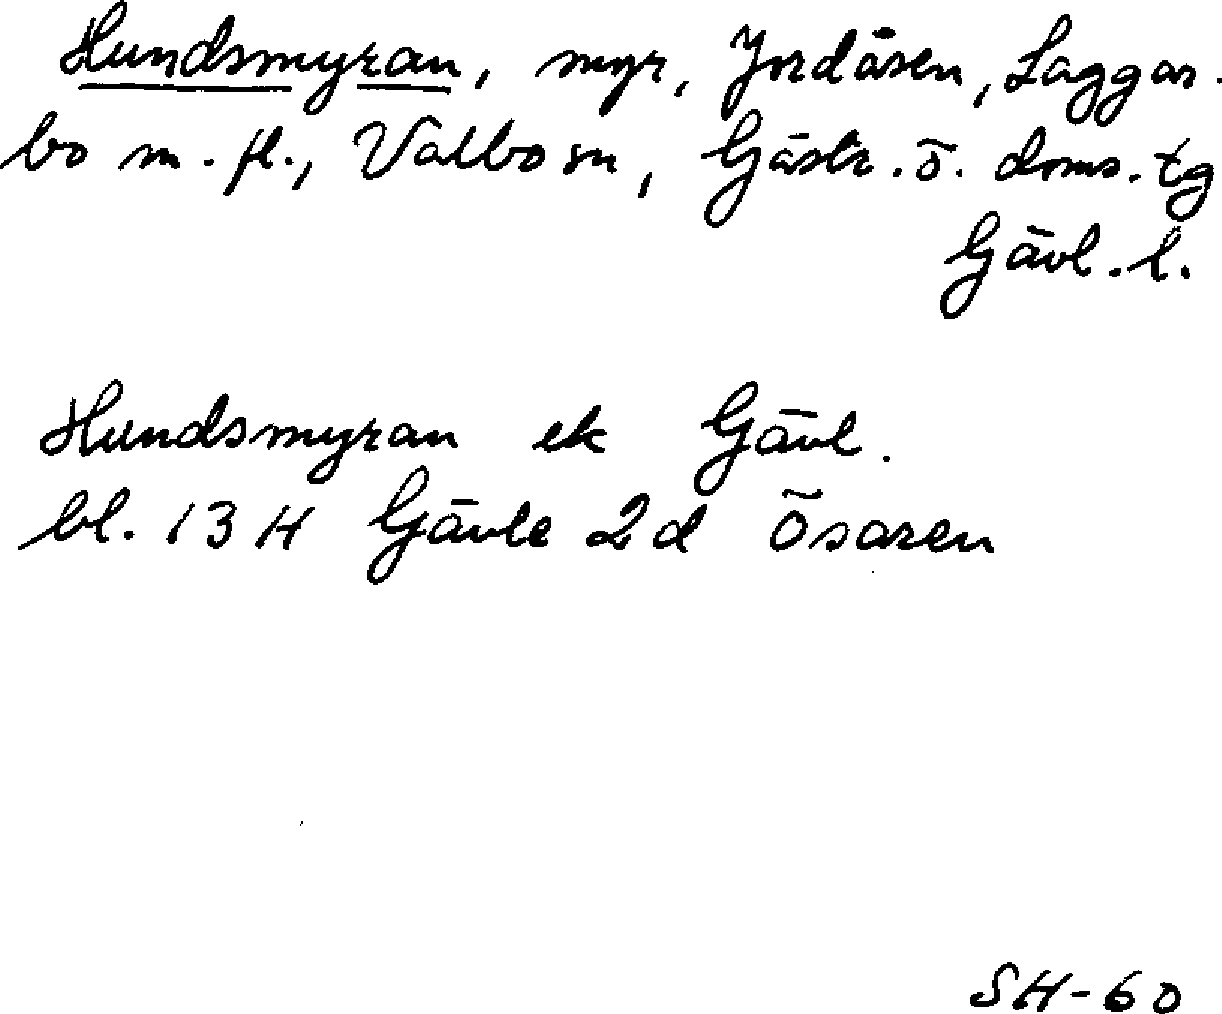 Hundsmyran, myr, Jordåsen, Laggar.
bo m. fl., Valbo sn, Gästr. ö. doms. tg
Gävl. l.
Hundsmyran ek Gävl.
bl. 13 H Gävle 2d Ösaren
SH-60